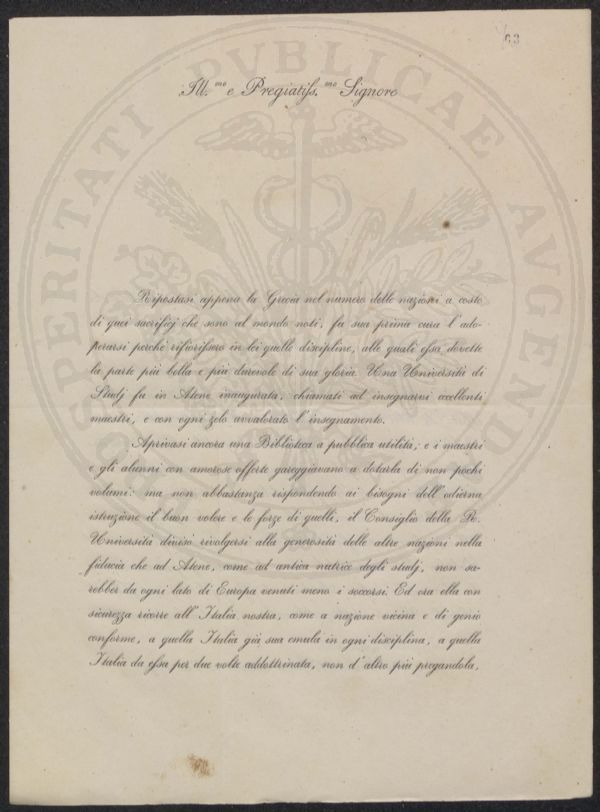 63
PROSPERITATI PVBLICAE AVGEND
Ill.mo e Pregiatiss.mo Signore
Ripostasi appena la Grecia nel numero delle nazioni a costo
di quei sacrificj che sono al mondo noti, fu sua prima cura l' ado-
perarsi perchè rifiorissero in lei quelle discipline, alle quali essa dovette
la parte più bella e più durevole di sua gloria. Una Università di
Studj fu in Atene inaugurata, chiamati ad insegnarvi eccellenti
maestri, e con ogni zelo avvalorato l' insegnamento.
Aprivasi ancora una Biblioteca a pubblica utilità; e i maestri
e gli alunni con amorose offerte gareggiavano a dotarla di non pochi
volumi: ma non abbastanza rispondendo ai bisogni dell' odierna
istruzione il buon volere e le forze di quelli, il Consiglio della R.
Università divisò rivolgersi alla generosità delle altre nazioni nella
fiducia che ad Atene, come ad antica nutrice degli studj, non sa-
rebber da ogni lato di Europa venuti meno i soccorsi. Ed ora ella con
sicurezza ricorre all' Italia nostra, come a nazione vicina e di genio
conforme, a quella Italia già sua emula in ogni disciplina, a quella
Italia da essa per due volte addottrinata, non d' altro più pregandola,